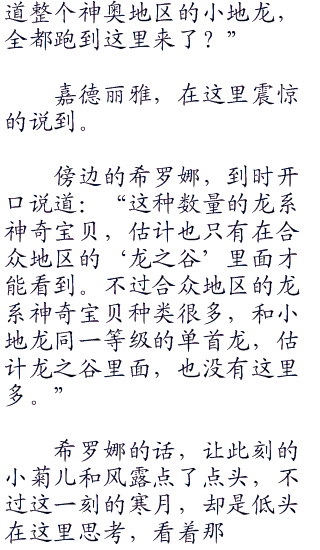 道整个神奥地区的小地龙，
全都跑到这里来了？”
嘉德丽雅，在这里震惊
的说到。
傍边的希罗娜，到时开
口说道：“这种数量的龙系
神奇宝贝，估计也只有在合
众地区的‘龙之谷’里面才
能看到。不过合众地区的龙
系神奇宝贝种类很多，和小
地龙同一等级的单首龙，估
计龙之谷里面，也没有这里
多。”
希罗娜的话，让此刻的
小菊儿和风露点了点头，不
过这一刻的寒月，却是低头
在这里思考，看着那